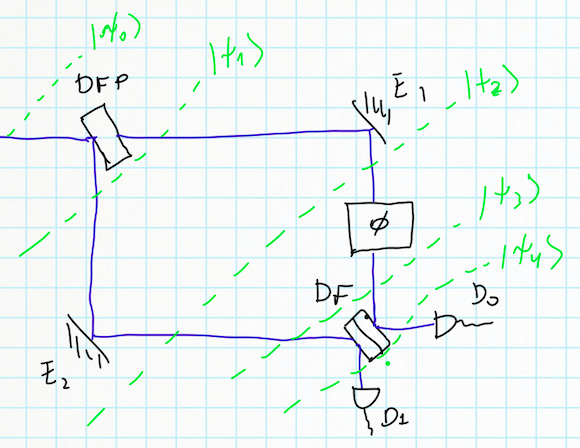 |ψ₀⟩
|ψ₁⟩
DFP
E₁
|ψ₂⟩
|ψ₃⟩
ϕ
|ψ₄⟩
DF
D₀
E₂
D₁